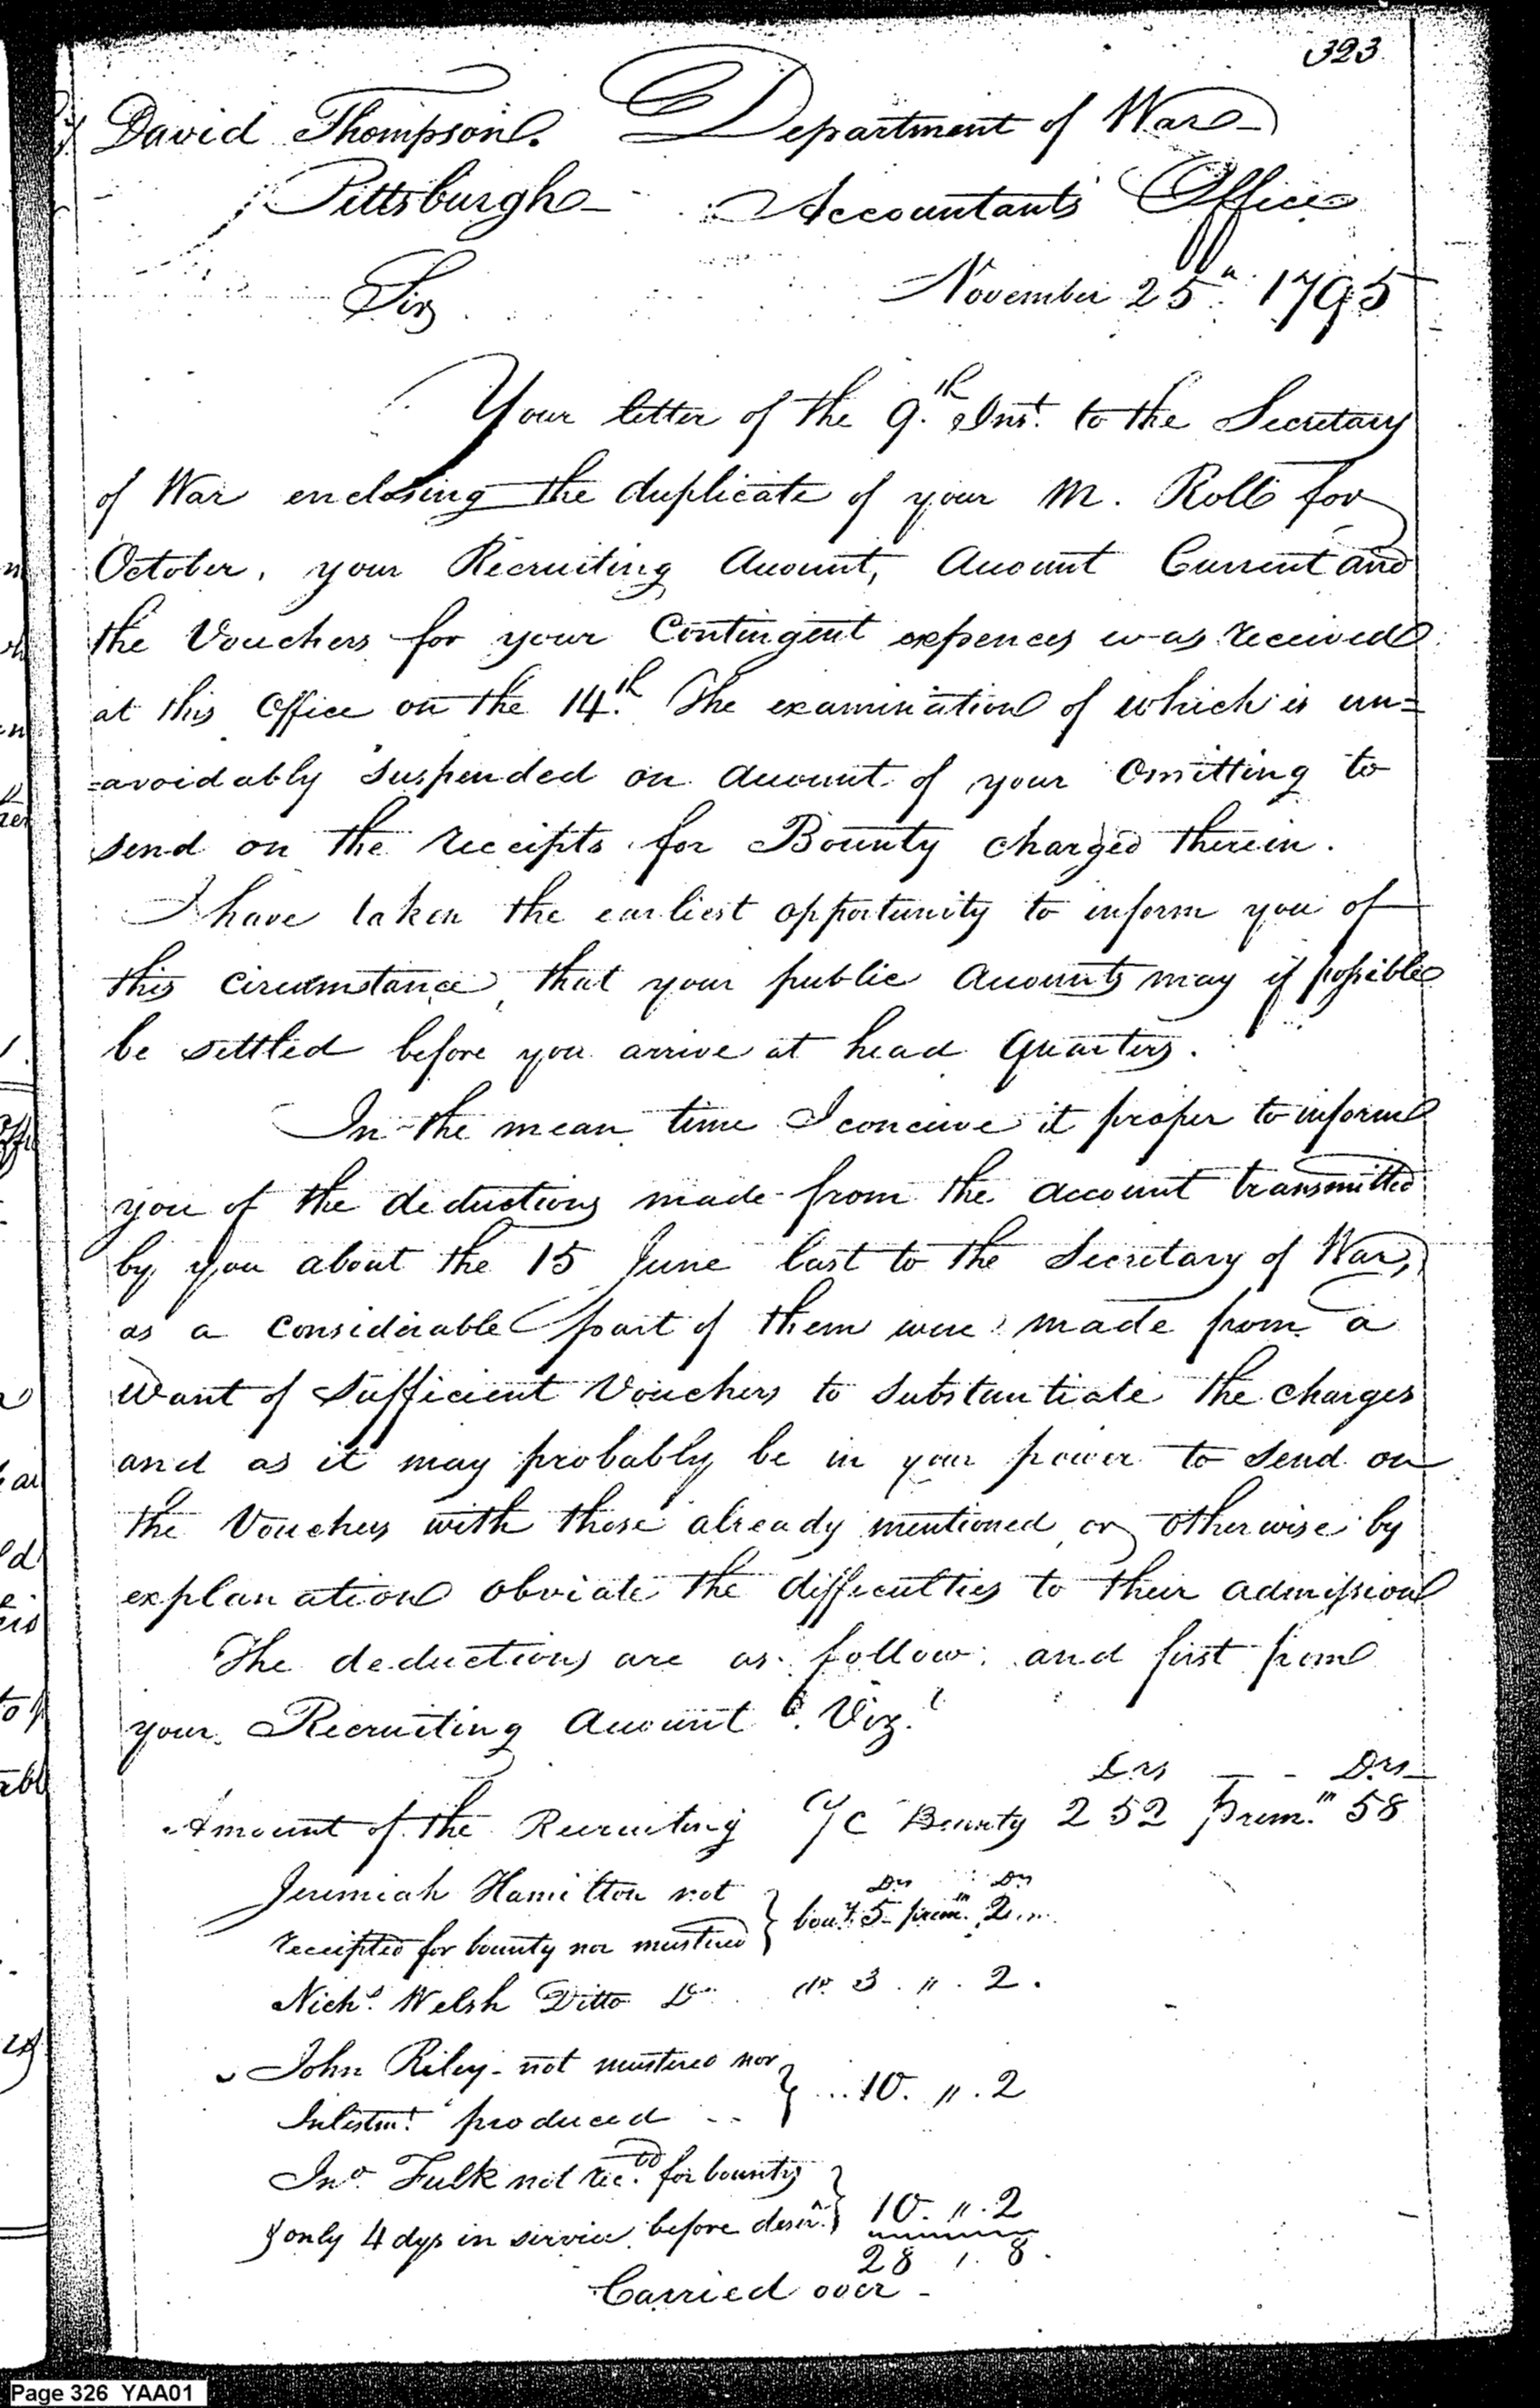 323
David Thompson. Department of War
Pittsburgh Accountants Office
Sir November 25th 1795
Your letter of the 9th Inst. to the Secretary
of War enclosing the duplicate of your M. Roll for
October, your Recruiting Account, Account Current and
the Vouchers for your Contingent expences was received
at this Office on the 14th. The examination of which is un=
=avoidably suspended on Account of your Omitting to
send on the receipts for Bounty charged therein.
I have taken the earliest opportunity to inform you of
this circumstance, that your public Accounts may if possible
be settled before you arrive at head Quarters.
In the mean time I conceive it proper to inform
you of the deductions made from the account transmitted
by you about the 15 June last to the Secretary of War,
as a considerable part of them were made from a
want of sufficient Vouchers to substantiate the charges
and as it may probably be in your power to send on
the Vouchers with those already mentioned, or otherwise by
explanation obviate the difficulties to their admission
The deductions are as follow: and first from
your Recruiting Account. Viz.
Drs — - Drs
Amount of the Recruiting a/c Bounty 252 prem.m 58
Jeremiah Hamilton not Drs Drs
receipted for bounty nor mustered } bouty. 5 prem.m 2
Nichs. Welsh Ditto Do do 3 . " . 2.
John Riley - not mustered nor
Inlistmt. produced -- } ... 10. " . 2
Jno. Fulk not rec.ed for bounty
& only 4 dys in service before desern. } 10. " . 2
28 . 8.
Carried over -
Page 326 YAA01